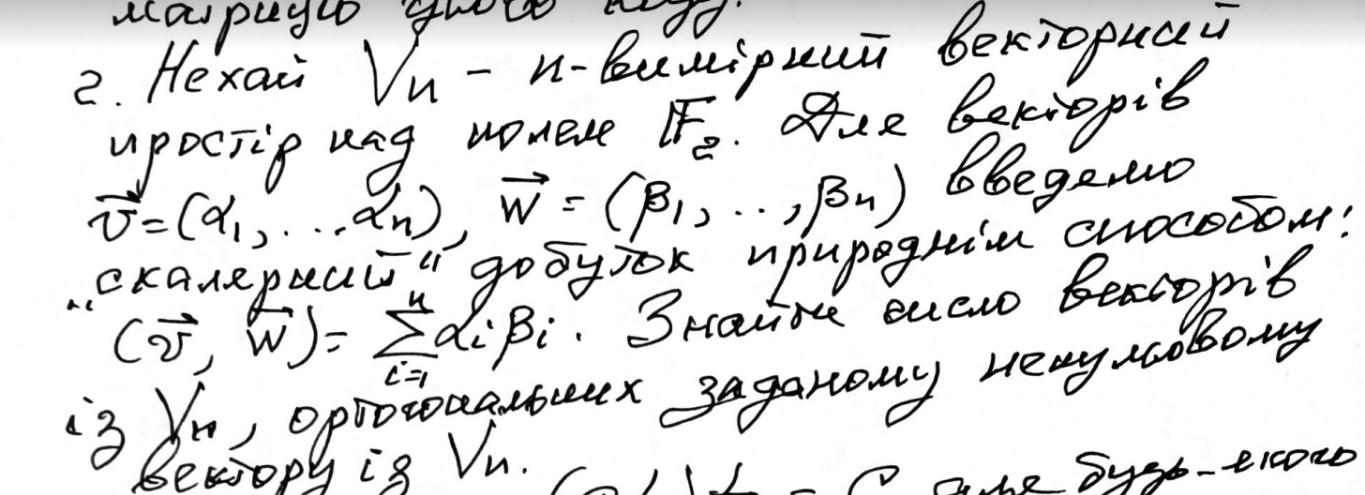 матрицю цього коду.
2. Нехай Vn - n-вимірний векторний
простір над полем F₂. Для векторів
v⃗=(α₁,...αn), w⃗=(β₁,..,βn) введемо
"скалярний" добуток природнім способом:
(v⃗, w⃗)= ∑ⁿᵢ₌₁ αᵢβᵢ. Знайти число векторів
із Vn, ортогональних заданому ненульовому
вектору із Vn.
= C для будь-якого